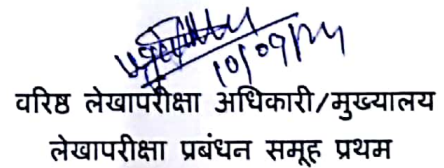 10/09/24
वरिष्ठ लेखापरीक्षा अधिकारी/मुख्यालय
लेखापरीक्षा प्रबंधन समूह प्रथम